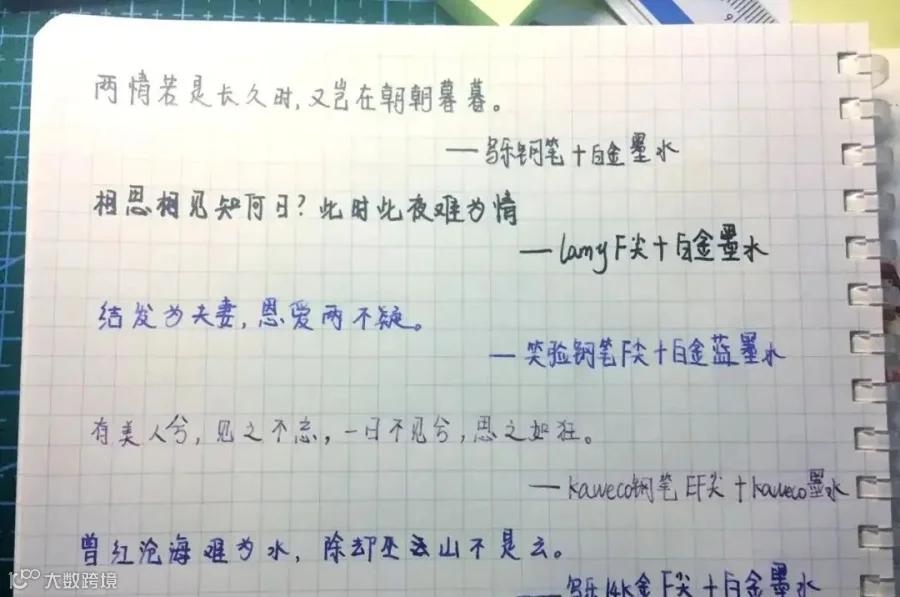 两情若是长久时,又岂在朝朝暮暮。
—写乐钢笔+白金墨水
相思相见知何日?此时此夜难为情
—lamy F尖+白金墨水
结发为夫妻,恩爱两不疑。
—笑脸钢笔F尖+白金蓝墨水
有美人兮,见之不忘,一日不见兮,思之如狂。
—kaweco钢笔 EF尖+kaweco墨水
曾红沧海难为水,除却巫山不是云。
—写乐14K金 F尖+白金墨水
大数跨境
9